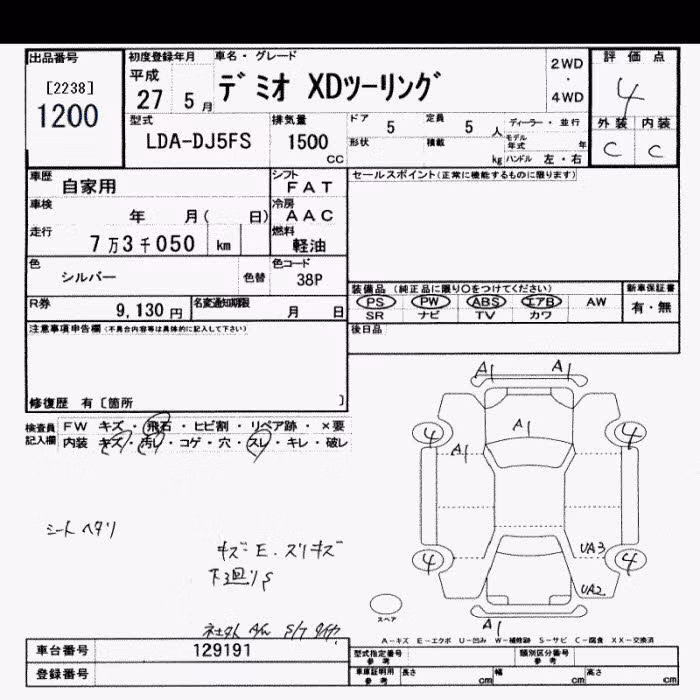 出品番号
[2238]
1200
初度登録年月
平成
27 5 月
車名・グレード
デミオ XDツーリング
2WD
・
4WD
評価点
4
外装 内装
C C
型式
LDA-DJ5FS
排気量
1500
CC
ドア 5 定員 5 人
形状 積載 kg
ディーラー・並行
モデル年式 年
ハンドル 左・右
車歴
自家用
シフト
FAT
車検
年 月( 日)
冷房
AAC
走行
7万3千050 km
燃料
軽油
色
シルバー
色替
色コード
38P
R券
9,130 円
名変通知期限
月 日
セールスポイント(正常に機能するものに限ります)
装備品 (純正品に限り○をつけてください)
PS PW ABS エアB AW
SR ナビ TV カワ
新車保証書
有・無
後日品
注意事項申告欄(不具合内容等は具体的に記入して下さい)
修復歴 有〔箇所 〕
検査員
記入欄
FW キズ・飛石・ヒビ割・リペア跡・×要
内装 キズ・汚レ・コゲ・穴・スレ・キレ・破レ
A1 A1
4 4
A1
A1
4 4
UA3
UA2
A1
スペア
シートヘタリ
キズE.スリキズ
下廻りS
A-キズ E-エクボ U-凹み W-補修跡 S-サビ C-腐食 XX-交換済
車台番号
129191
登録番号
型式指定番号
参考
類別区分番号
参考
車庫証明用
参考
長さ cm 幅 cm 高さ cm